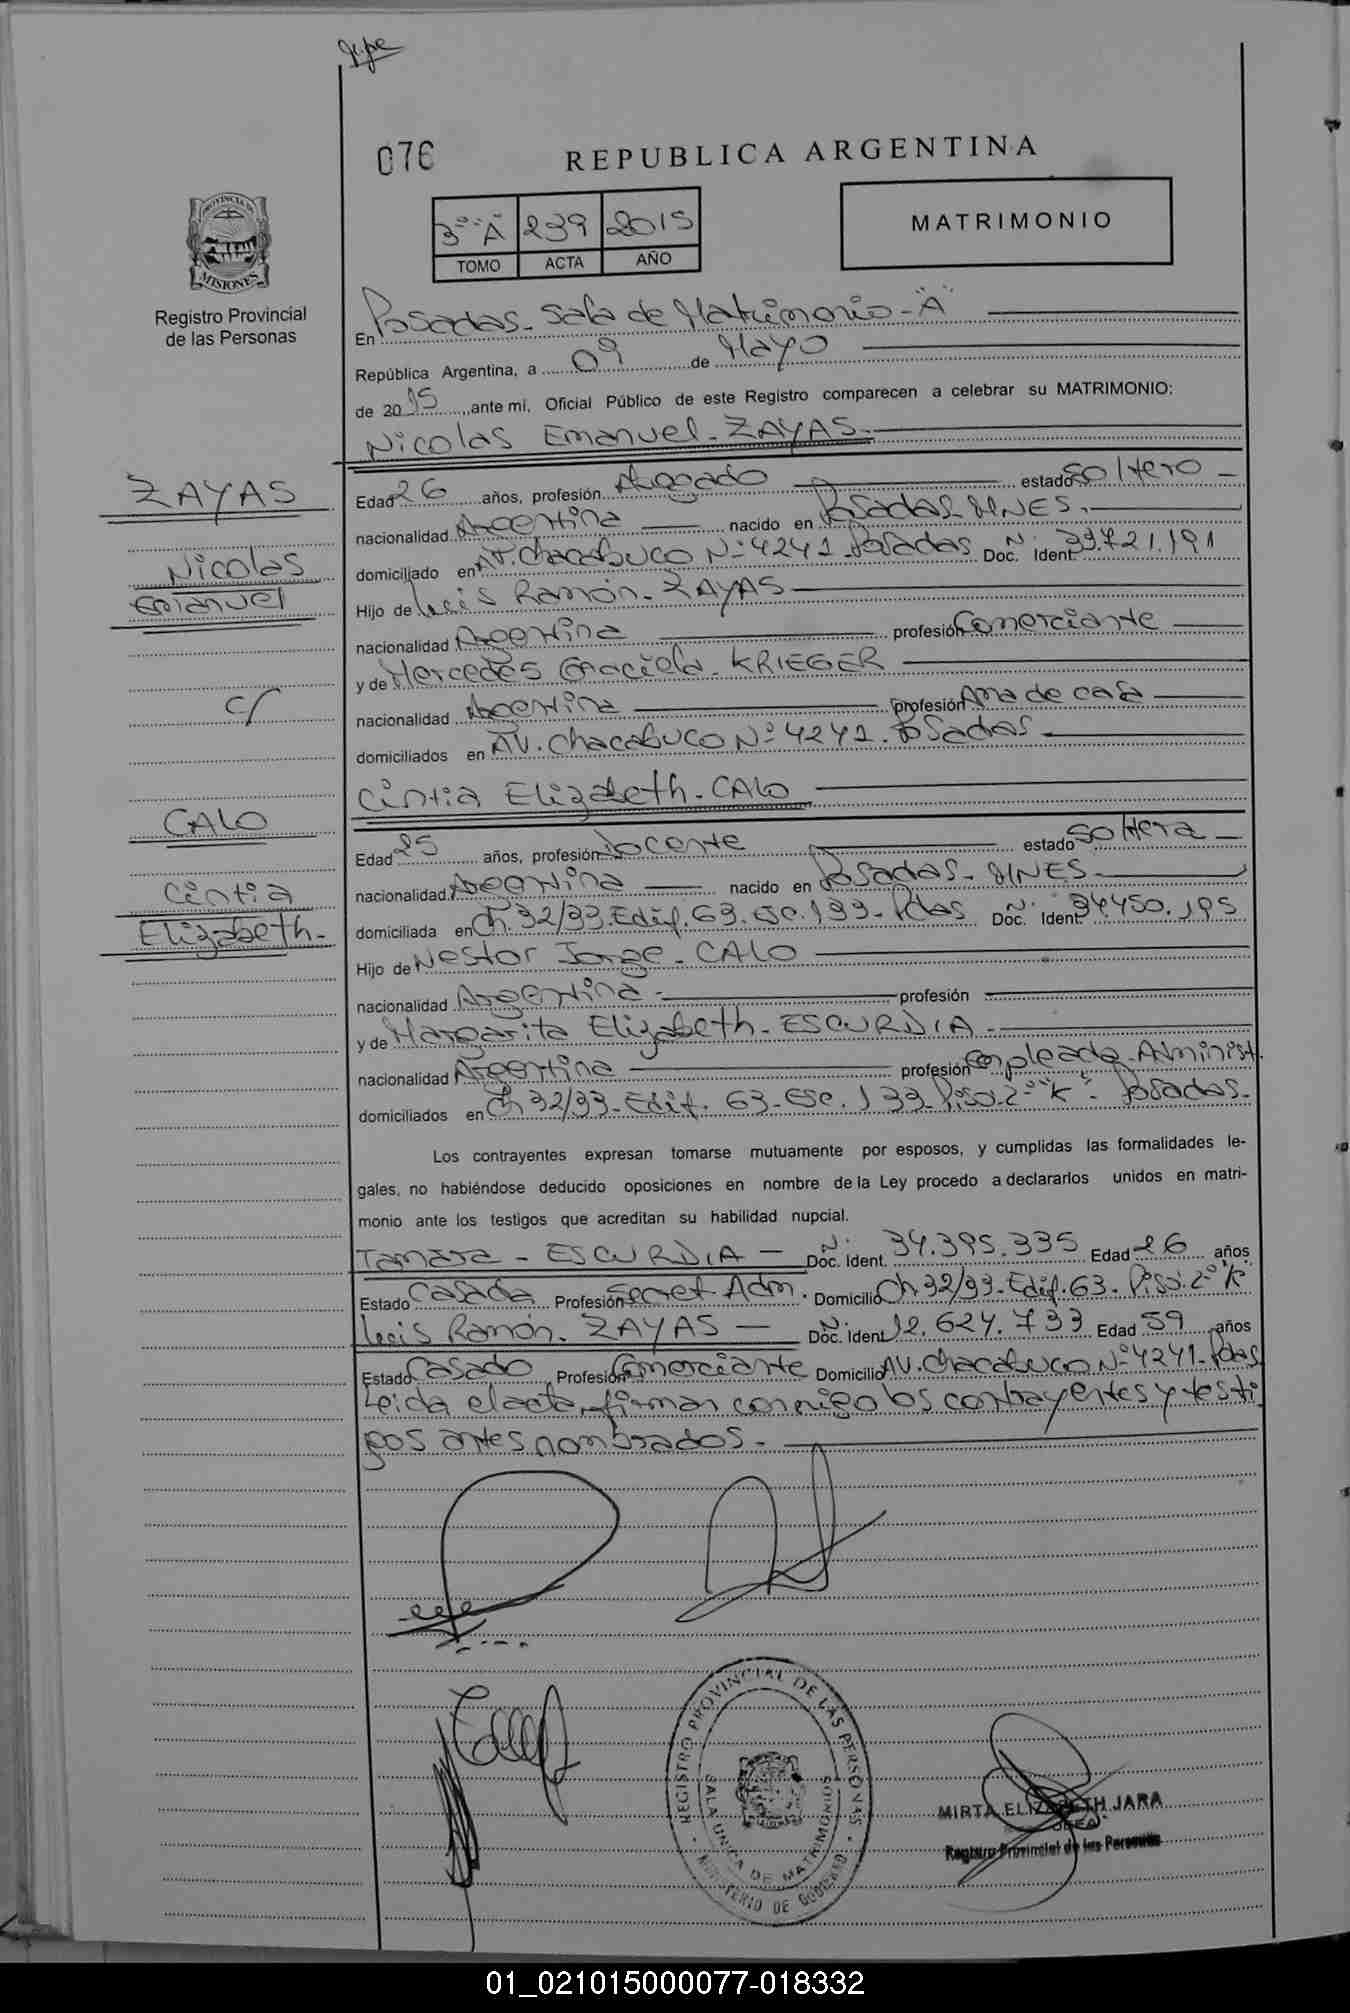 076
REPUBLICA ARGENTINA
PROVINCIA DE
MISIONES
Registro Provincial
de las Personas
3º "A" 239 2015
TOMO ACTA AÑO
MATRIMONIO
En Posadas - Sala de Matrimonio - "A"
República Argentina, a 09 de Mayo
de 2015 ante mi, Oficial Público de este Registro comparecen a celebrar su MATRIMONIO:
Nicolas Emanuel - ZAYAS -
ZAYAS
Nicolas
Emanuel
c/
CALO
Cintia
Elizabeth -
Edad 26 años, profesión Abogado estado soltero -
nacionalidad Argentina nacido en Posadas MNES.
domiciliado en Av. Chacabuco Nº 4241 Posadas Doc. Nº Ident. 33.721.191
Hijo de Luis Ramón - ZAYAS
nacionalidad Argentina profesión Comerciante
y de Mercedes Graciela - KRIEGER
nacionalidad Argentina profesión Ama de casa
domiciliados en AV. Chacabuco Nº 4241 - Posadas
Cintia Elizabeth - CALO
Edad 25 años, profesión Docente estado soltera -
nacionalidad Argentina nacido en Posadas - MNES -
domiciliada en Ch. 32/33. Edif. 63. esc. 133 - Pdas Doc. Nº Ident. 34.450.195
Hijo de Nestor Jorge - CALO
nacionalidad Argentina - profesión
y de Margarita Elizabeth - ESCURDIA -
nacionalidad Argentina profesión Empleada - Administ.
domiciliados en Ch 32/33 - Edif. 63 - esc. 133 - Piso 2º "K" - Posadas -
Los contrayentes expresan tomarse mutuamente por esposos, y cumplidas las formalidades le-
gales, no habiéndose deducido oposiciones en nombre de la Ley procedo a declararlos unidos en matri-
monio ante los testigos que acreditan su habilidad nupcial.
Tamara - ESCURDIA - Doc. Nº Ident. 34.395.335 Edad 26 años
Estado Casada Profesión Secret. Adm. Domicilio Ch 32/33 - Edif. 63 - Piso: 2º "K"
Luis Ramón - ZAYAS - Doc. Nº Ident 12.624.733 Edad 59 años
Estado Casado Profesión Comerciante Domicilio AV. Chacabuco Nº 4241 - Pdas
Leida el acta, firman conmigo los contrayentes y testi
gos antes nombrados -
REGISTRO PROVINCIAL DE LAS PERSONAS
SALA UNICA DE MATRIMONIOS
MINISTERIO DE GOBIERNO
MIRTA ELIZABETH JARA
JEFA
Registro Provincial de las Personas
01_021015000077-018332